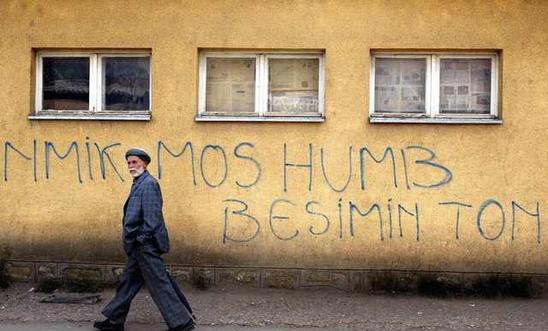 NMIK MOS HUMB
BESIMIN TOM